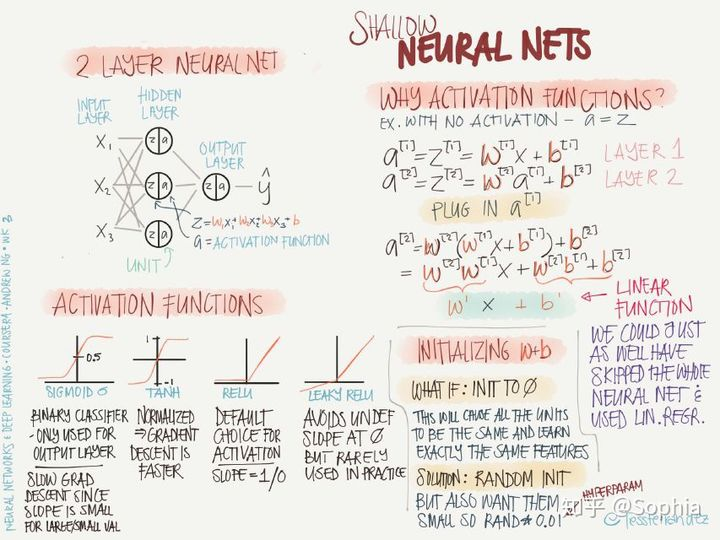 SHALLOW
NEURAL NETS
2 LAYER NEURAL NET
INPUT LAYER
HIDDEN LAYER
OUTPUT LAYER
X₁
X₂
X₃
z|a
z|a
z|a
z|a
ŷ
Z=W₁X₁+W₂X₂+W₃X₃+b
a=ACTIVATION FUNCTION
UNIT
WHY ACTIVATION FUNCTIONS?
EX. WITH NO ACTIVATION - a=Z
a^[1]=Z^[1]=W^[1]X+b^[1] LAYER 1
a^[2]=Z^[2]=W^[2]a^[1]+b^[2] LAYER 2
PLUG IN a^[1]
a^[2]=W^[2](W^[1]X+b^[1])+b^[2]
=W^[2]W^[1]X+W^[2]b^[1]+b^[2]
W' X + b'
LINEAR
FUNCTION
WE COULD JUST
AS WELL HAVE
SKIPPED THE WHOLE
NEURAL NET &
USED LIN. REGR.
ACTIVATION FUNCTIONS
0.5
SIGMOID σ
BINARY CLASSIFIER
-ONLY USED FOR
OUTPUT LAYER
SLOW GRAD
DESCENT SINCE
SLOPE IS SMALL
FOR LARGE/SMALL VAL
1
-1
TANH
NORMALIZED
⇒GRADIENT
DESCENT IS
FASTER
RELU
DEFAULT
CHOICE FOR
ACTIVATION
SLOPE=1/0
LEAKY RELU
AVOIDS UNDEF
SLOPE AT 0
BUT RARELY
USED IN PRACTICE
INITIALIZING W+b
WHAT IF: INIT TO Ø
THIS WILL CAUSE ALL THE UNITS
TO BE THE SAME AND LEARN
EXACTLY THE SAME FEATURES
SOLUTION: RANDOM INIT
BUT ALSO WANT THEM
SMALL SO RAND * 0.01
HYPERPARAM
NEURAL NETWORKS & DEEP LEARNING · COURSERA · ANDREW NG · WK 3
知乎 @Sophia